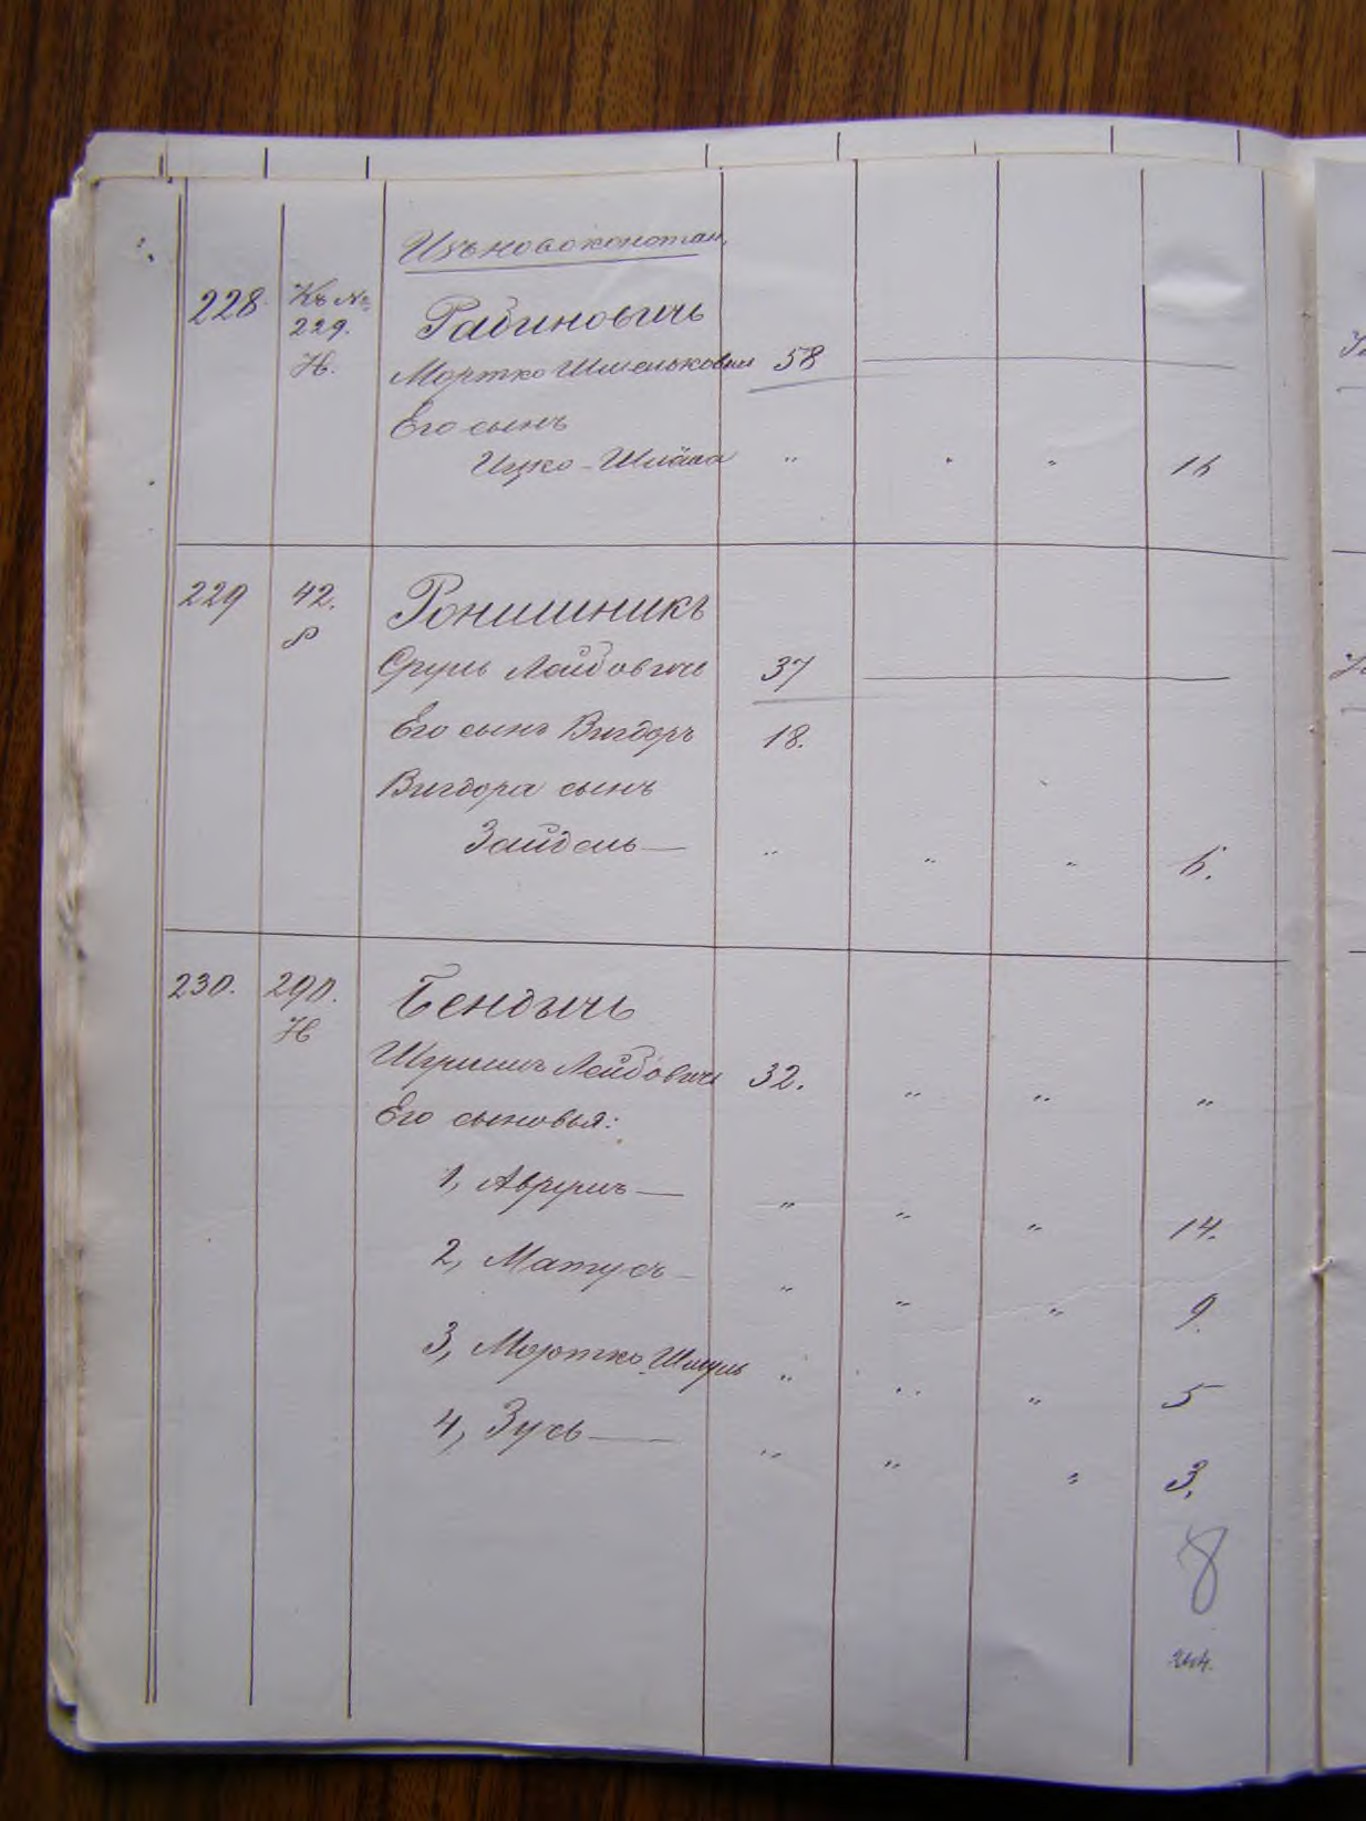 Изъ новоконстан.
228. Къ №
229.
Н.
Рабиновичъ
Мортко Шмельковичъ 58
Его сынъ
Ицко-Шлёма " " " 16
229 42.
Р
Ронишникъ
Сруль Лейбовичъ 37
Его сынъ Вигдоръ 18.
Вигдора сынъ
Зейдель — " " " 6.
230. 290.
Н
Бендычъ
Лейбовичъ 32. " " "
Его сыновья:
1, Аврумъ — " " " 14.
2, Матусъ — " " " 9.
3, Мортко Шмуль " " " 5
4, Зусь — " " " 3,
8